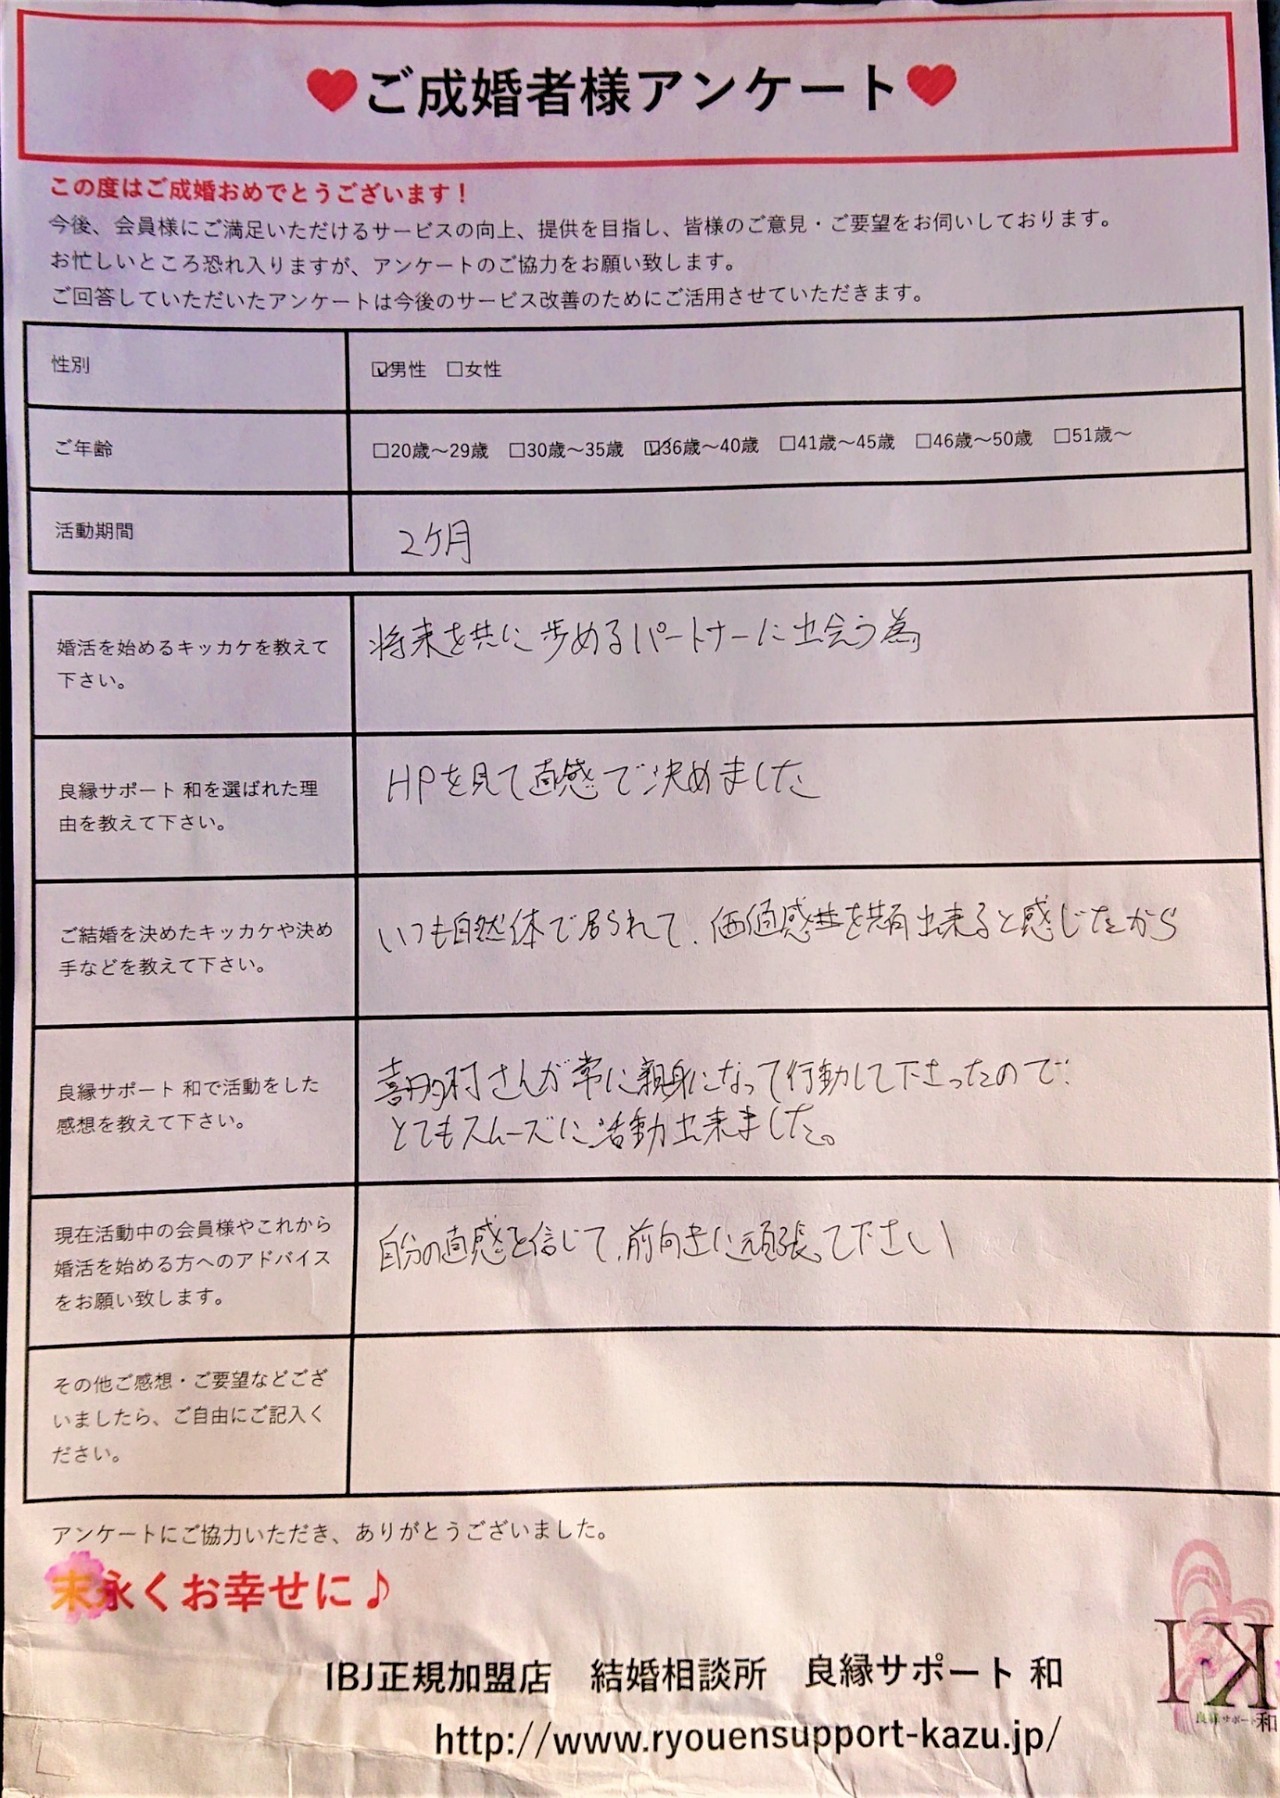 ❤ご成婚者様アンケート❤
この度はご成婚おめでとうございます！
今後、会員様にご満足いただけるサービスの向上、提供を目指し、皆様のご意見・ご要望をお伺いしております。
お忙しいところ恐れ入りますが、アンケートのご協力をお願い致します。
ご回答していただいたアンケートは今後のサービス改善のためにご活用させていただきます。
性別
☑男性　□女性
ご年齢
□20歳～29歳　□30歳～35歳　☑36歳～40歳　□41歳～45歳　□46歳～50歳　□51歳～
活動期間
2ケ月
婚活を始めるキッカケを教えて
下さい。
将来を共に歩めるパートナーに出会う為
良縁サポート 和を選ばれた理
由を教えて下さい。
HPを見て直感で決めました
ご結婚を決めたキッカケや決め
手などを教えて下さい。
いつも自然体で居られて、価値感を共有出来ると感じたから
良縁サポート 和で活動をした
感想を教えて下さい。
喜多村さんが常に親身になって行動して下さったので
とてもスムーズに活動出来ました。
現在活動中の会員様やこれから
婚活を始める方へのアドバイス
をお願い致します。
自分の直感を信じて、前向きに頑張って下さい
その他ご感想・ご要望などござ
いましたら、ご自由にご記入く
ださい。
アンケートにご協力いただき、ありがとうございました。
末永くお幸せに♪
IBJ正規加盟店　結婚相談所　良縁サポート 和
http://www.ryouensupport-kazu.jp/
良縁サポート和